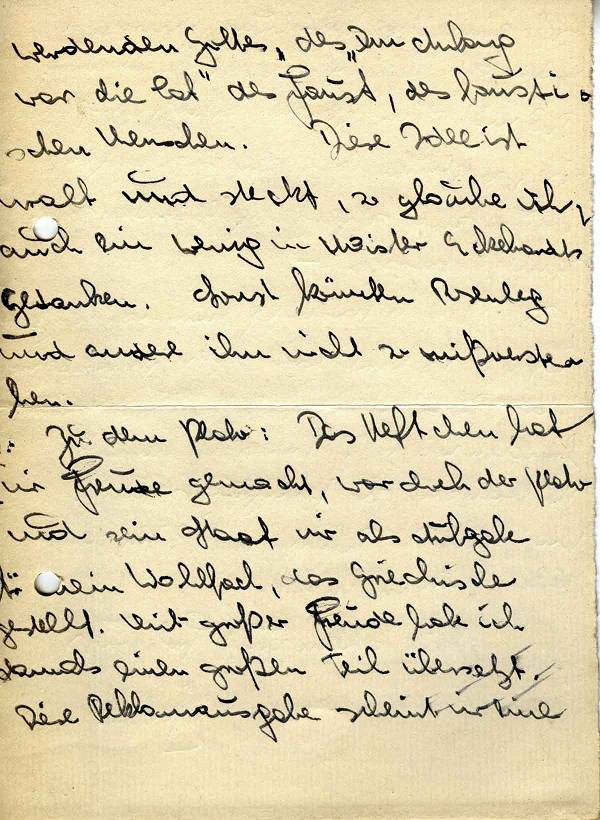 werdenden Gottes, des „Im Anfang
war die Tat" des Faust, des fausti-
schen Menschen. Diese Idee ist
uralt und steckt, so glaube ich,
auch ein wenig in Meister Eckehardts
Gedanken. Sonst könnten Rosenberg
und andere ihn nicht so mißverste-
hen.
Zu dem Plato: Das Heftchen hat
mir Freude gemacht, war doch der Plato
und sein Staat mir als Aufgabe
für mein Wahlfach, das Griechische
gestellt. Mit großer Freude habe ich
damals einen großen Teil übersetzt.
Diese Reklamausgabe scheint mir eine